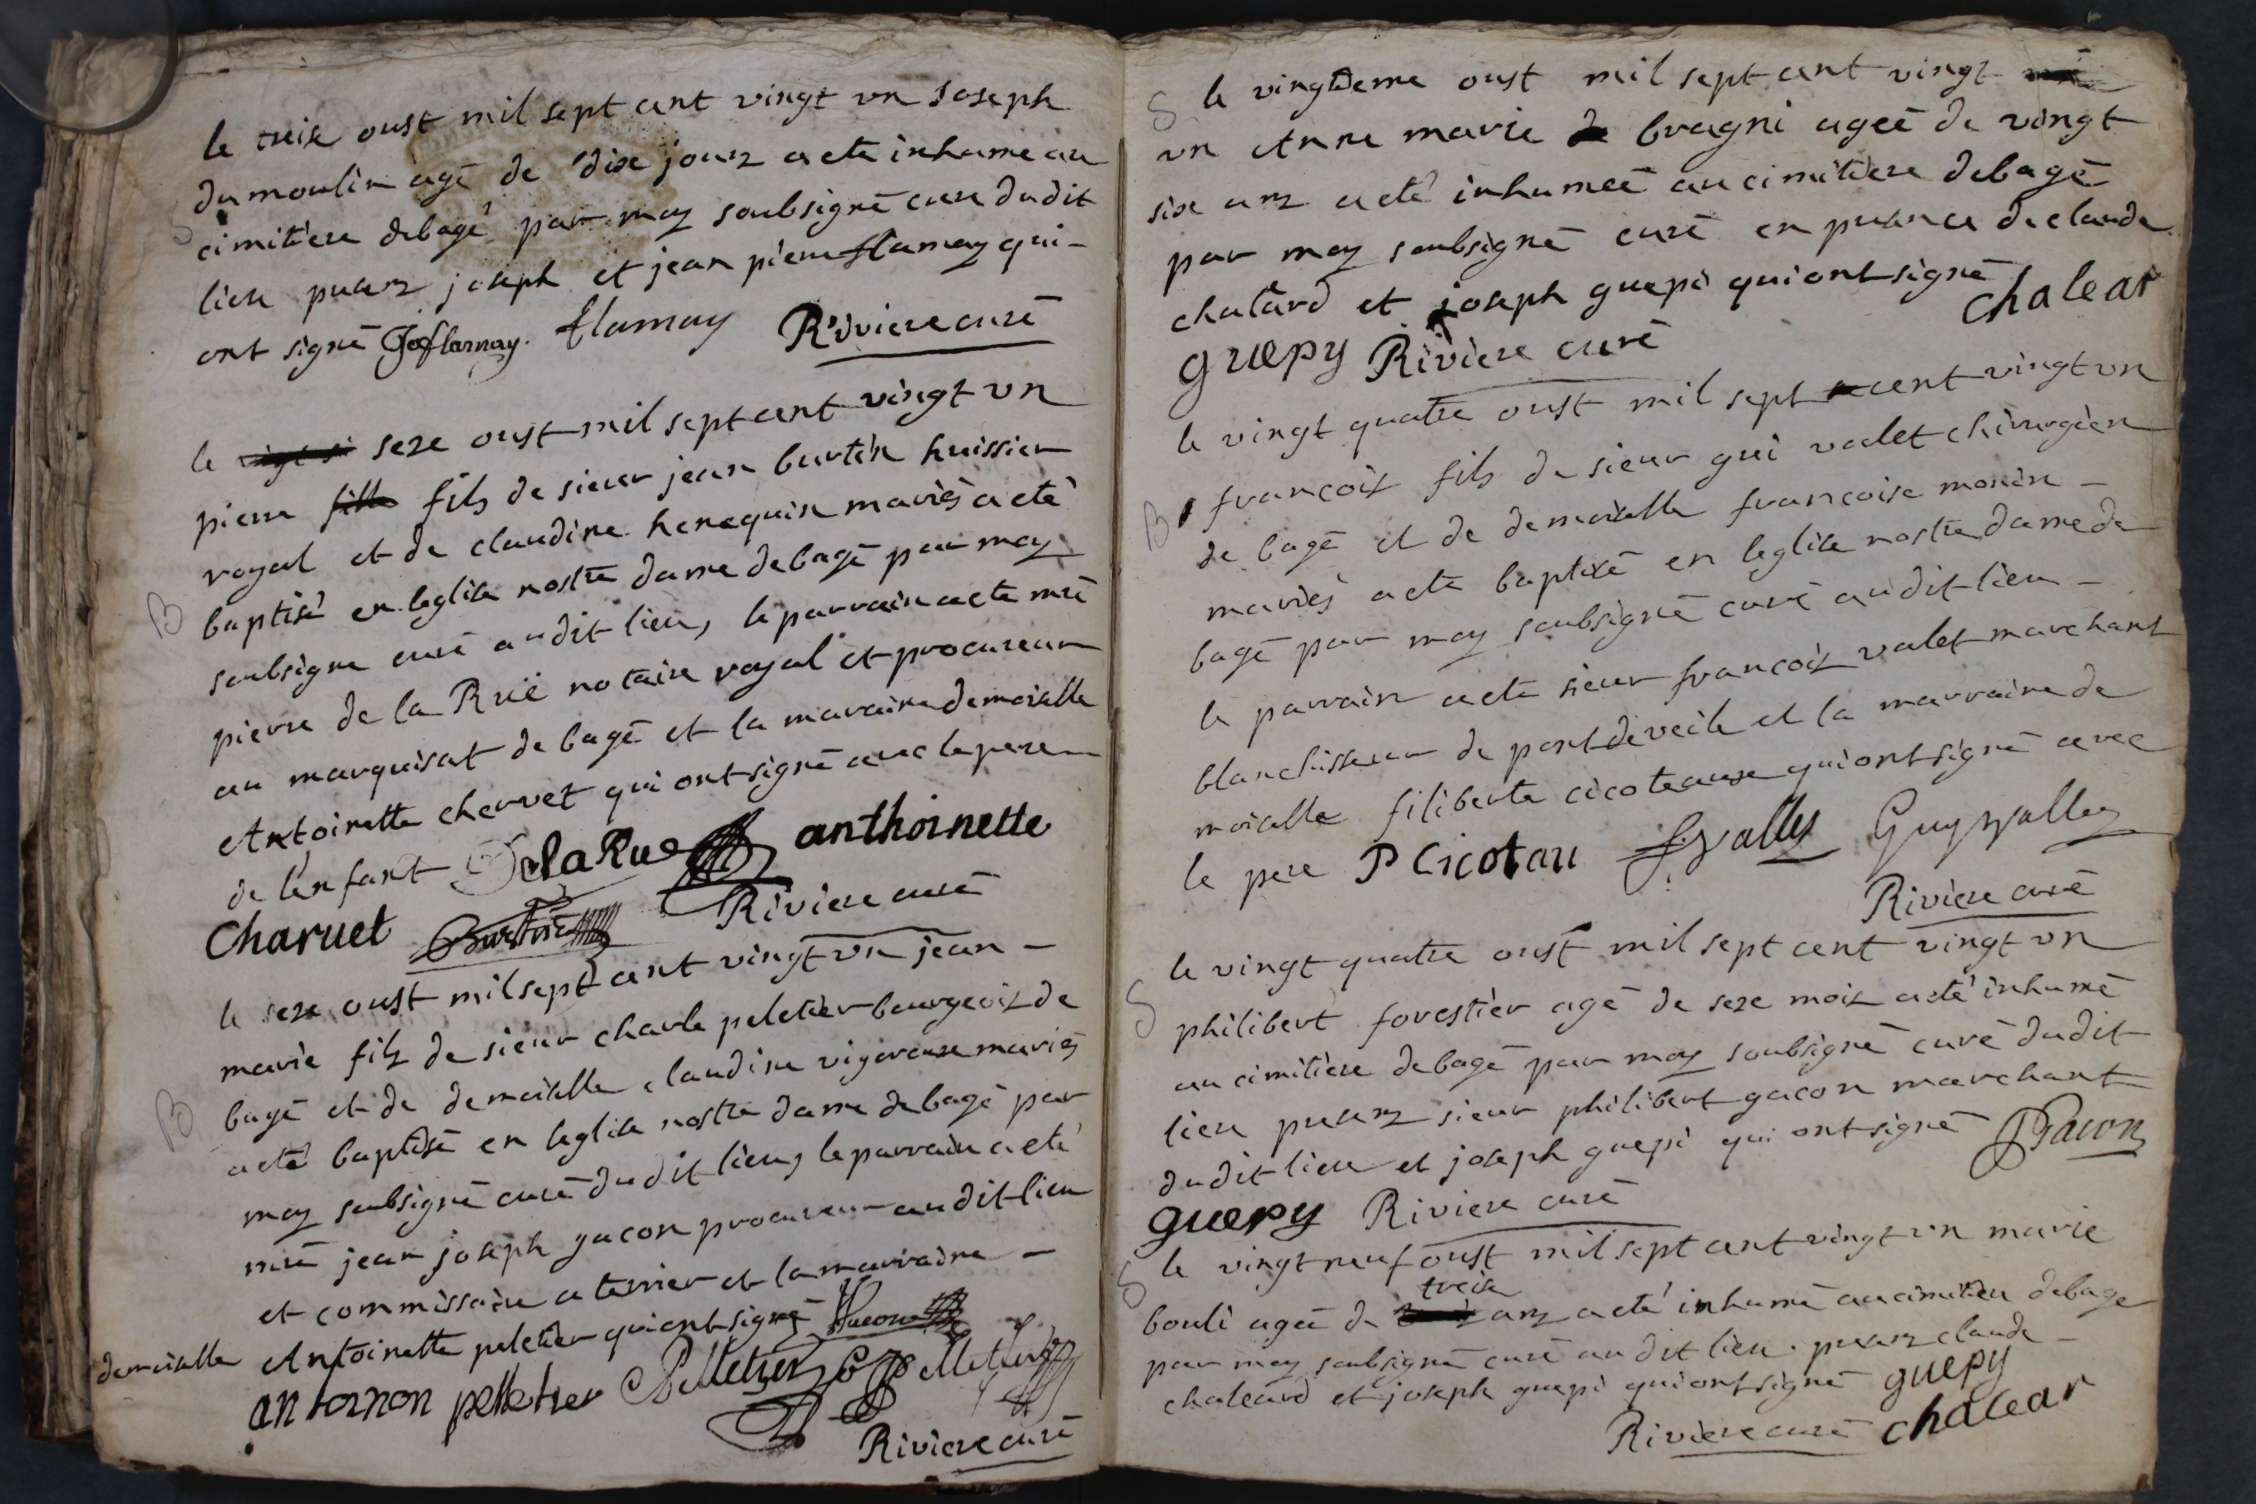 le treise oust mil sept cent vingt un Joseph
S dumoulin agé de dix jours a eté inhumé au
cimitiere debagé par moy soubsigné curé dudit
lieu presens joseph et jean pierre flamay qui
ont signé Joflamay. flamay Riviere curé
le seze oust mil sept cent vingt un
pierre fils de sieur jean burtin huissier
royal et de claudine henequin mariés a eté
B baptisé en leglise nostre dame de bagé par moy
soubsigné curé audit lieu, le parrain a eté mre
pierre de la Ruë notaire royal et procureur
au marquisat de bagé et la maraine demoiselle
Antoinette chervet qui ont signé avec le pere
de l'enfant DelaRue anthoinette
Charuet Burtin Riviere curé
le seze oust mil sept cent vingt un jean
marie fils de sieur charle peletier bourgeois de
B bagé et de demoiselle claudine vigoreuse mariés
a eté baptisé en leglise nostre dame de bagé par
moy soubsigné curé dudit lieu, le parrain a eté
mre jean joseph gacon procureur audit lieu
et commissaire a terrier et la marraine
demoiselle Antoinette peletier qui ont signé Gacon
antoinon pelletier Pelletier Pelletier
Riviere curé
S le vingtieme oust mil sept cent vingt
un Anne marie bragni ageé de vingt
six ans a eté inhumeé au cimitiere de bagé
par moy soubsigné curé en presence de claude
chaleard et joseph guepi qui ont signé chalear
guepy Riviere curé
le vingt quatre oust mil sept cent vingt un
B françois fils de sieur gui valet chirurgien
de bagé et de demoiselle françoise monin
mariés a eté baptisé en leglise nostre dame de
bagé par moy soubsigné curé audit lieu
le parrain a eté sieur françois valet marchant
blanchisseur de pontdeveile et la marraine de
moiselle filiberte cicoteause qui ont signé avec
le pere P Cicotau f valley Guy valley
Riviere curé
le vingt quatre oust mil sept cent vingt un
S philibert forestier agé de seze mois a eté inhumé
au cimitiere de bagé par moy soubsigné curé dudit
lieu presens sieur philibert gacon marchant
dudit lieu et joseph guepi qui ont signé PGacon
guepy Riviere curé
S le vingt neuf oust mil sept cent vingt un marie
treise
bouli ageé de ans a eté inhumé au cimitiere de bagé
par moy soubsigné curé audit lieu. presens claude
chaleard et joseph guepi qui ont signé guepy
Riviere curé chalear